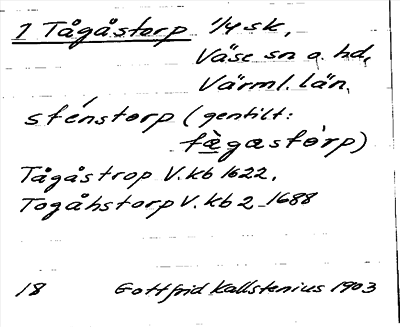 1 Tågåstorp 1/4 sk,
Väse sn o. hd,
Värml. län.
sténstorp (gentilt:
tàgastórp)
Tågåstrop V. kb 1622,
Togåhstorp V. kb 2 1688
18 Gottfrid Kallstenius 1903